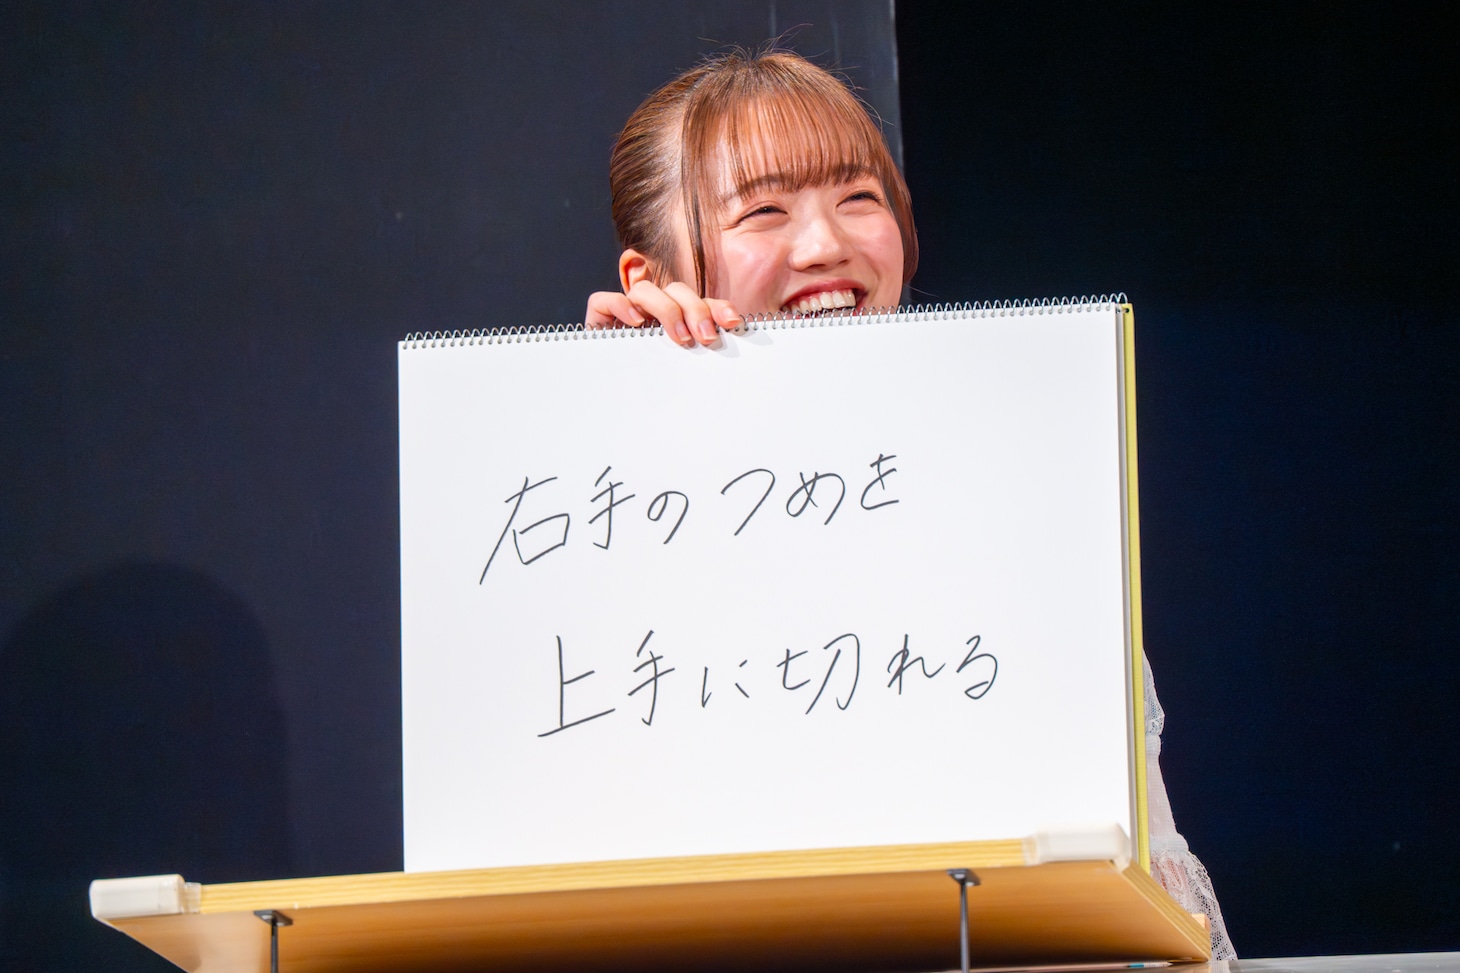 右手のつめを
上手に切れる